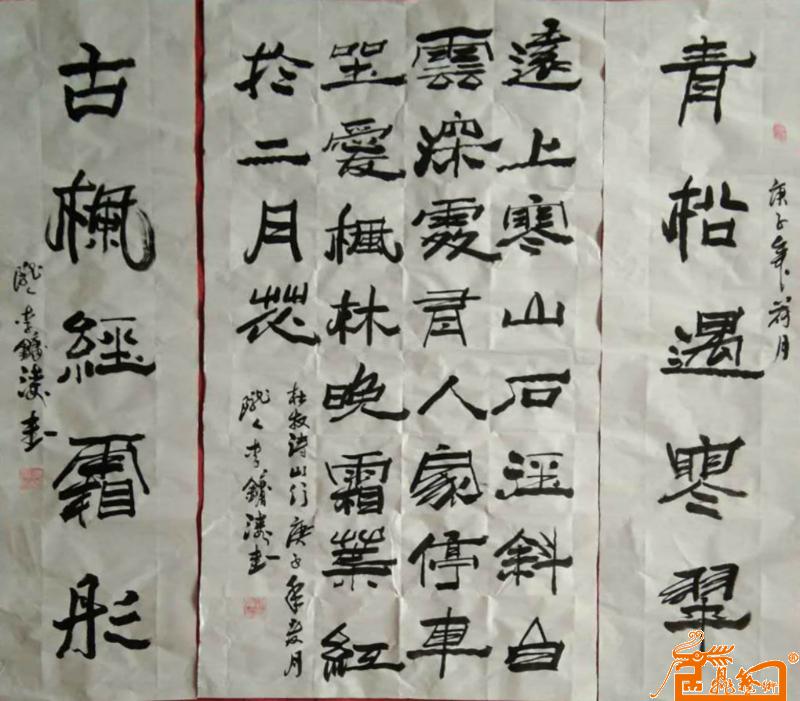 青松遇寒翠
庚子年
遠上寒山石逕斜白
雲深處有人家停車
坐愛楓林晚霜葉紅
於二月花
杜牧诗山行庚子年
陇人李
古楓經霜彤
陇人李